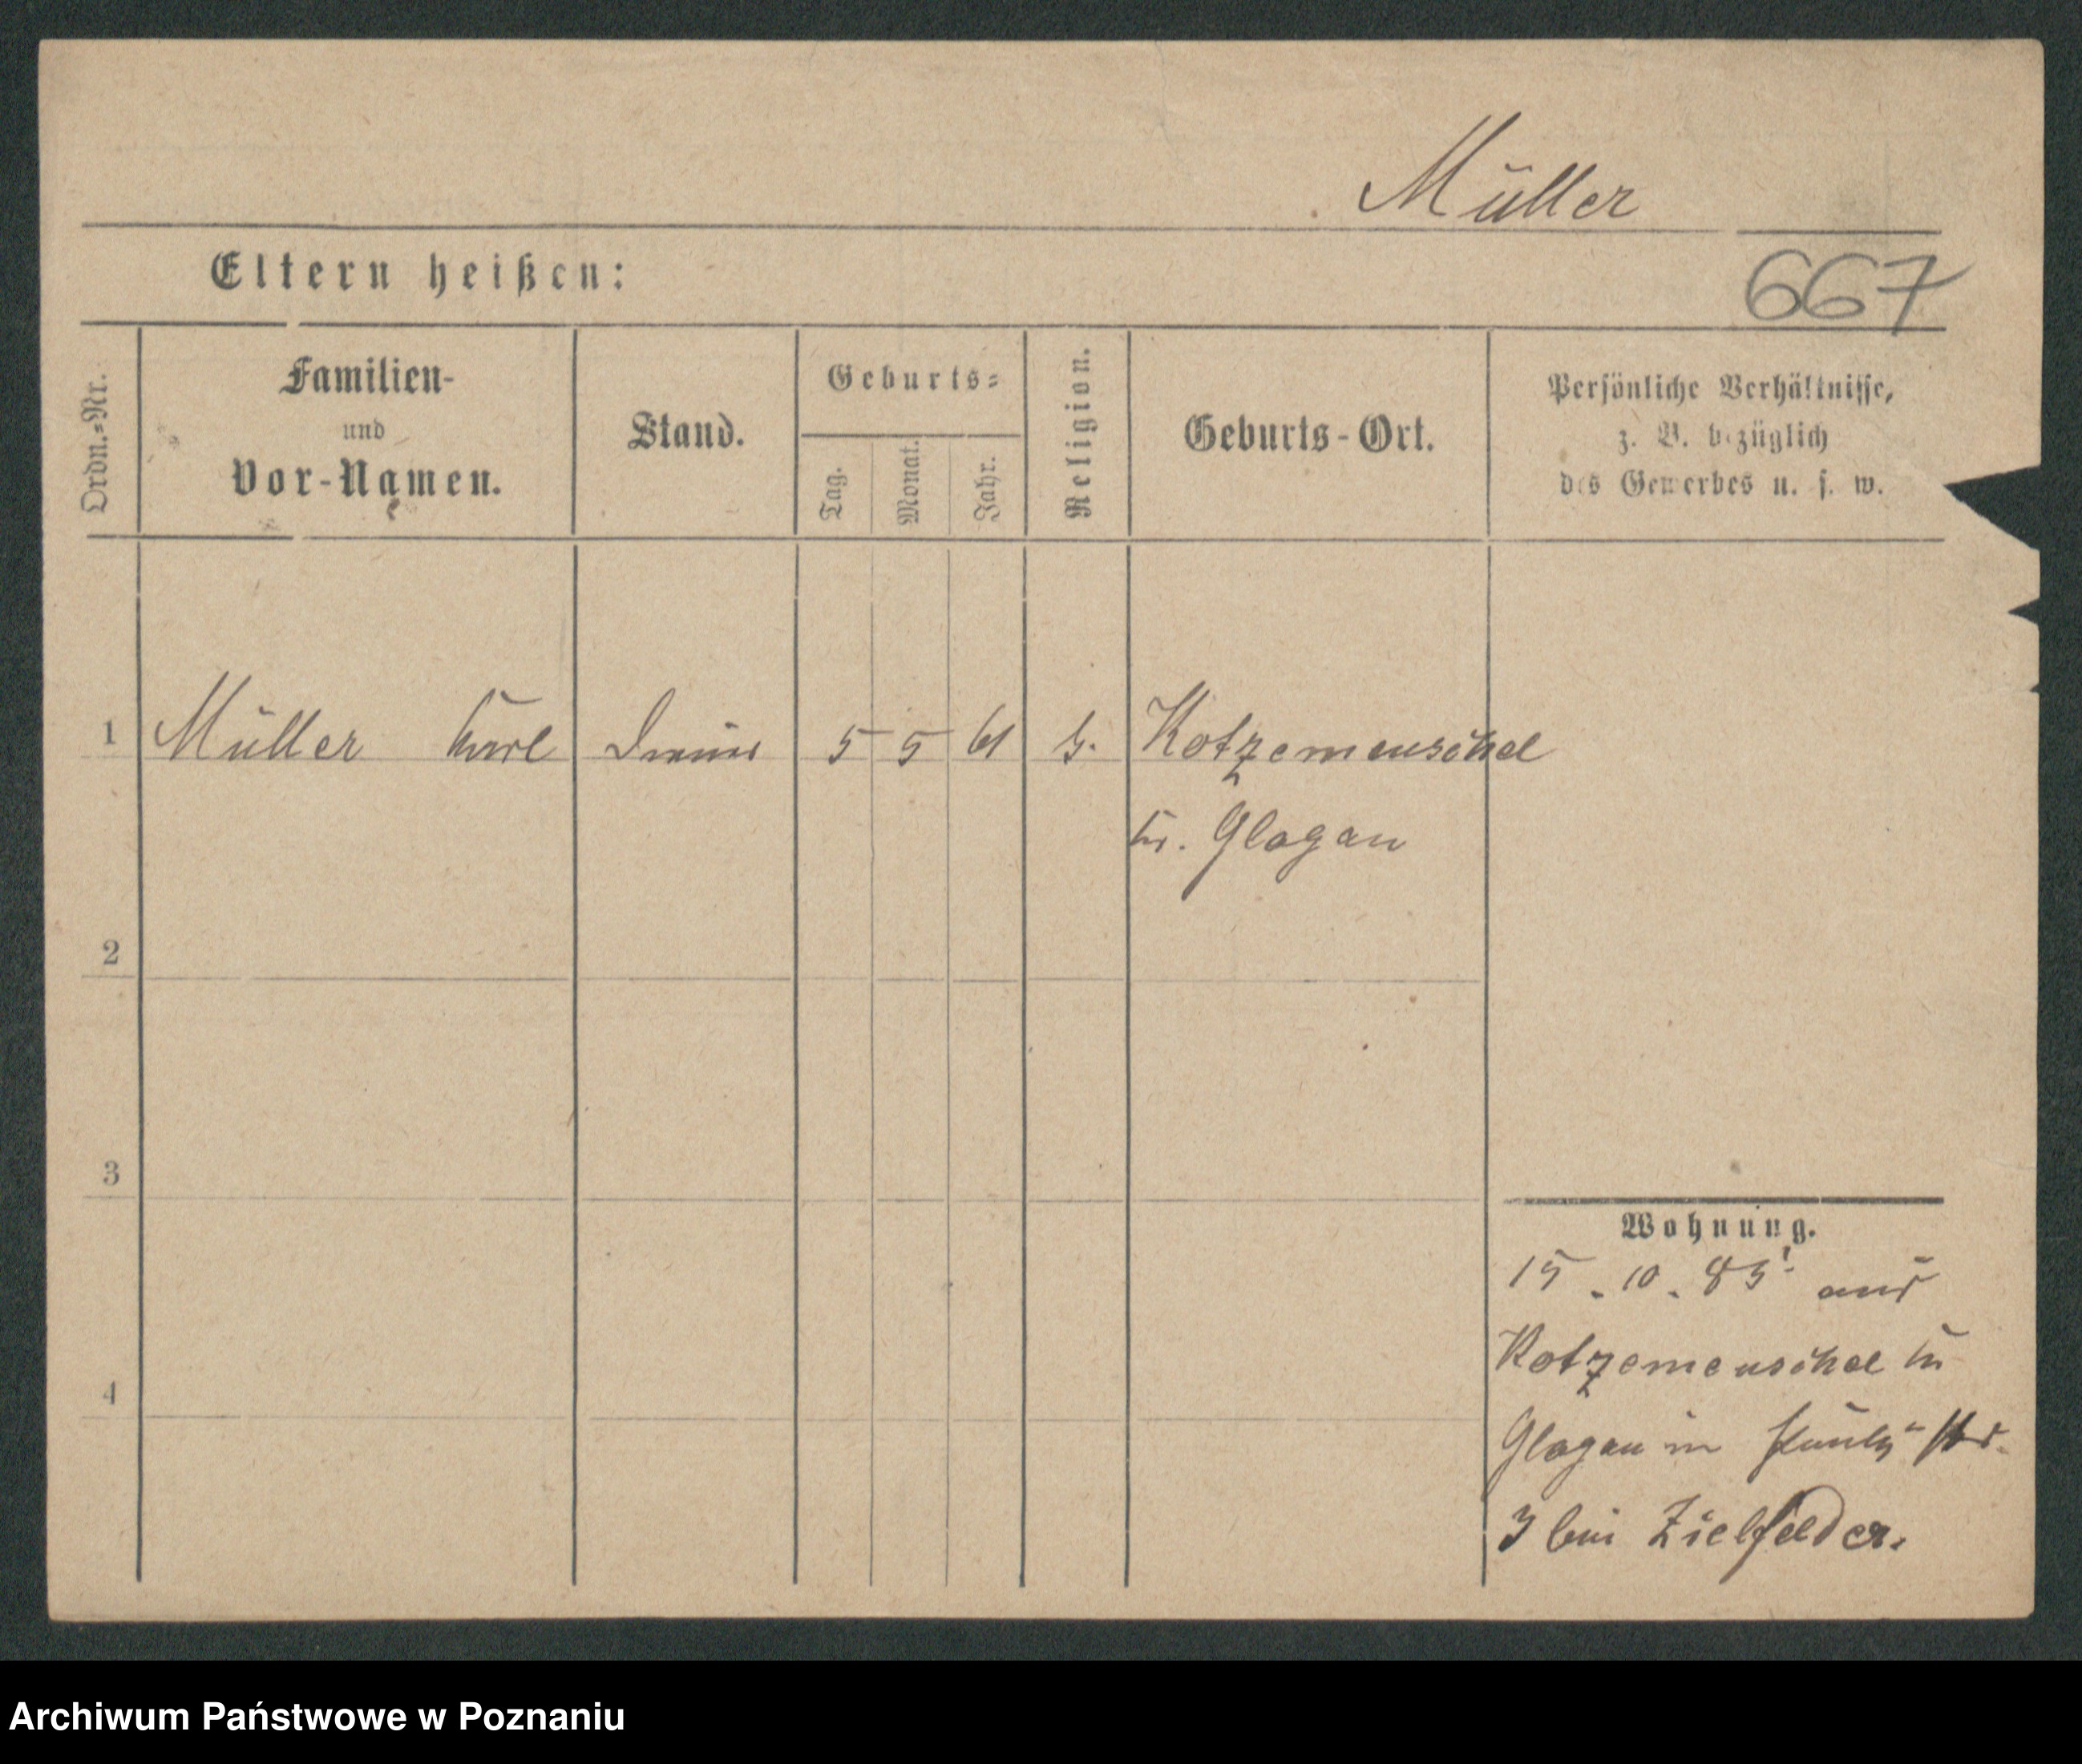 Müller
Eltern heißen:
667
Ordn.-Nr.
Familien-
und
Vor-Namen.
Stand.
Geburts-
Tag.
Monat.
Jahr.
Religion.
Geburts-Ort.
Persönliche Verhältnisse,
z. B. bezüglich
des Gewerbes u. s. w.
1 Müller Karl 5 5 61 Kotzemeuschel
Kr. Glogau
2
3
4
Wohnung.
15. 10. 85. aus
Kotzemeuschel Kr
Glogau in
3 bei Zielfelder.
Archiwum Państwowe w Poznaniu